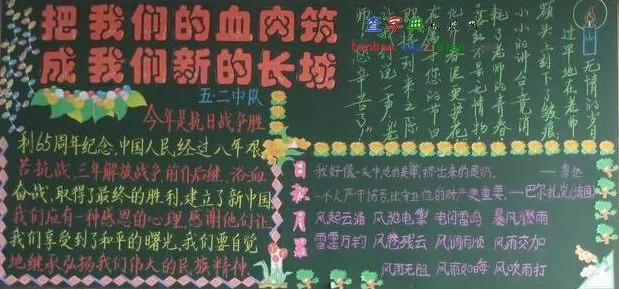 把我们的血肉筑
成我们新的长城
五二中队
今年是抗日战争胜
利65周年纪念,中国人民经过八年艰
苦抗战,三年解放战争前仆后继、浴血
奋战,取得了最终的胜利,建立了新中国
我们应有一种感恩的心理,感谢他们让
我们享受到了和平的曙光,我们要自觉
地继承弘扬我们伟大的民族精神
查字典
无情的岁月
过早地在老师的
额头上刻下了皱痕
小小的讲台竟消
耗了老师的青春
在
您的节日
到来之际
说一声
您辛苦了
日积月累
我好像一头牛,吃的是草,挤出来的是奶。——鲁迅
一个人严守诺言,比守卫他的财产更重要。——巴尔扎克(法国)
风起云涌 风驰电掣 电闪雷鸣 暴风骤雨
雷霆万钧 风卷残云 风调雨顺 风雨交加
风雨无阻 风雨如晦 风吹雨打